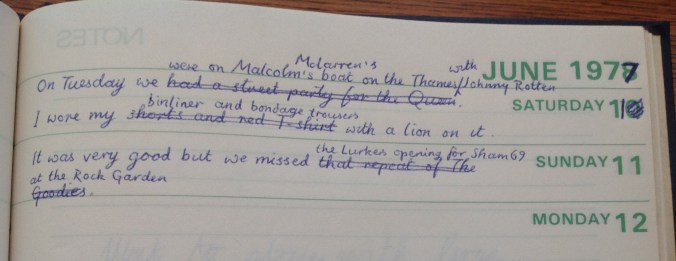 NOTES
JUNE 1977
Mclarren's
were on Malcolm's boat on the Thames with Johnny Rotten
On Tuesday we had a street party for the Queen.
SATURDAY 10
binliner and bondage trousers
I wore my shorts and red T-shirt with a lion on it.
the Lurkers opening for Sham 69
It was very good but we missed that repeat of The
SUNDAY 11
at the Rock Garden
Goodies.
MONDAY 12